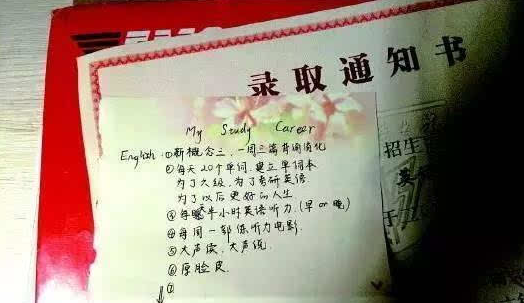 录取通知书
My Study Career
English: ①新概念三,一周二篇背诵消化
②每天20个单词,建立单词本
为了六级,为了考研英语
为了以后更好的人生
③每天半小时英语听力.(早 or 晚)
④每周一部练听力电影.
⑤大声读,大声说.
⑥厚脸皮.
⑦
招生